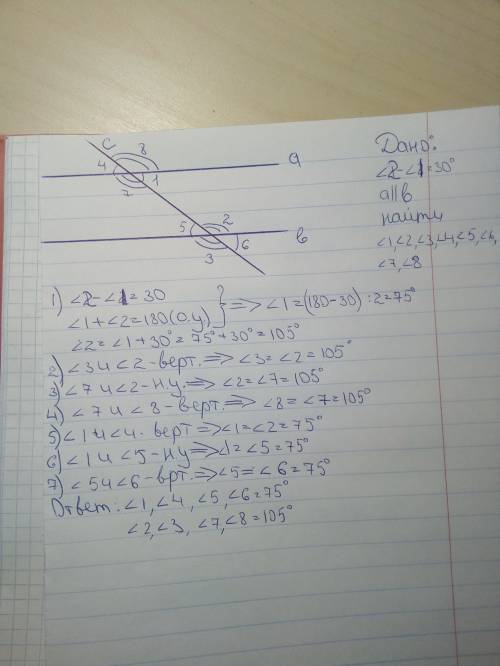 C
8
a
4
1
7
5
2
в
6
3
Дано:
∠2-∠1=30°
a||в
найти
∠1,∠2,∠3,∠4,∠5,∠6,
∠7,∠8
1) ∠2-∠1=30
∠1+∠2=180(О.У) } => ∠1=(180-30):2=75°
∠2=∠1+30°=75°+30°=105°
2) ∠3 и ∠2-верт.=>∠3=∠2=105°
3) ∠7 и ∠2-НУ.=>∠2=∠7=105°
4) ∠7 и ∠8-верт.=>∠8=∠7=105°
5) ∠1 и ∠4- верт=>∠1=∠2=75°
6) ∠1 и ∠5-НУ=>∠1=∠5=75°
7) ∠5 и ∠6-врт.=>∠5=∠6=75°
Ответ:∠1,∠4,∠5,∠6=75°
∠2,∠3,∠7,∠8=105°